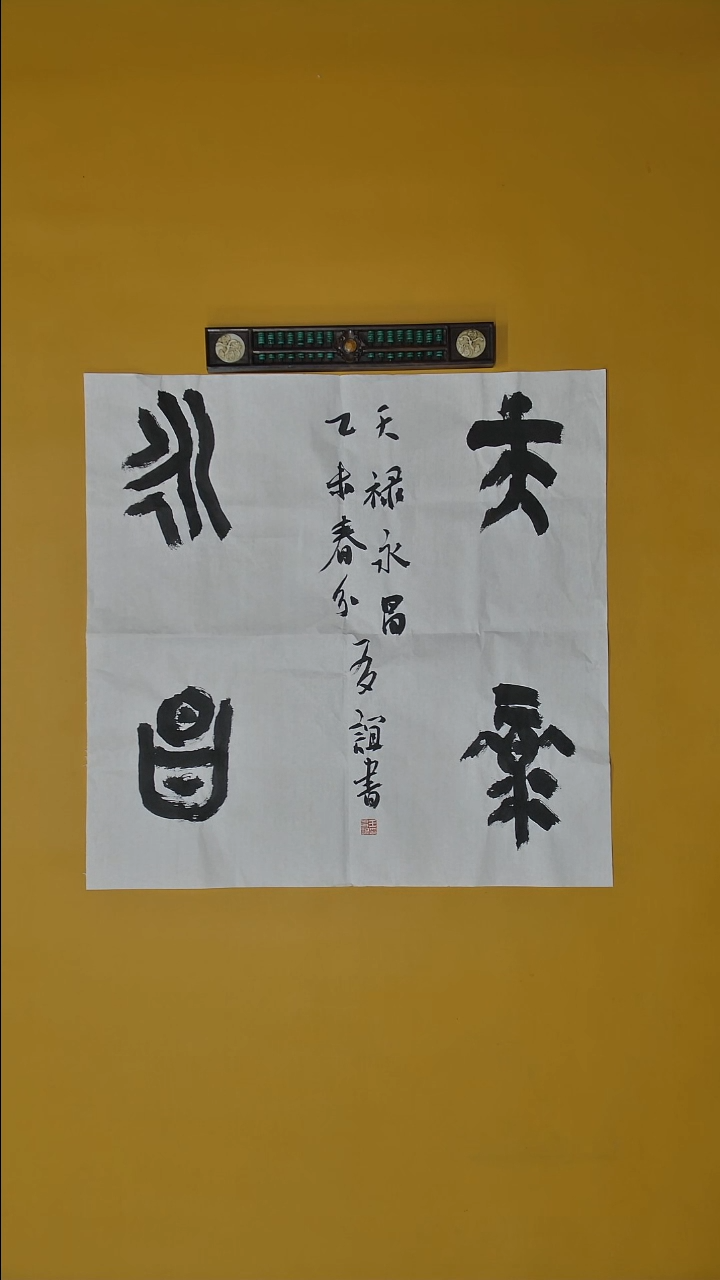 天禄
永昌
天禄永昌
乙未春分
友誼書